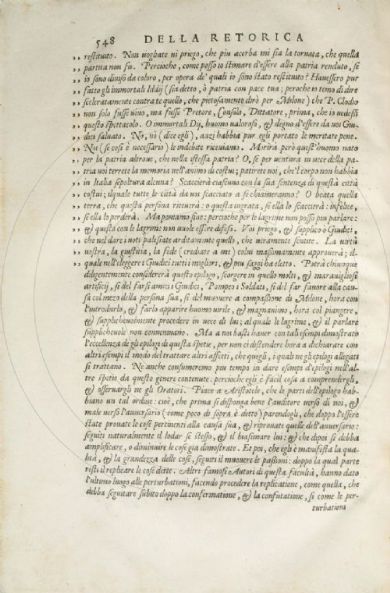 548 DELLA RETORICA
,, restituto. Non vogliate vi priego, che piu acerba mi sia la tornata, che quella
,, partita non fu. Percioche, come posso io stimare d'essere alla patria renduto, se
,, io sono diviso da coloro, per opera de' quali io sono stato restituito? Havessero pur
,, fatto gli immortali Iddij (sia detto, ò patria con pace tua; peroche io temo di dire
,, sceleratamente contra te quello, che pietosamente dirò per Milone) che P. Clodio
,, non solo fusse vivo, ma fusse Pretore, Consule, Dittatore, prima, che io vedessi
,, questo spettacolo. O immortali Dij, huomo valoroso, & degno d'essere da voi Giu-
,, dici salvato. No, nò (dice egli), anzi habbia pur egli portato le meritate pene.
,, Noi (se così è necessario) le indebite riceviamo. Morirà però quest'huomo nato
,, per la patria altrove, che nella istessa patria? O, se per ventura in vece della pa-
,, tria voi terrete la memoria nell'animo di costui; patirete voi, che'l corpo non habbia
,, in Italia sepoltura alcuna? Scaccierà ciascuno con la sua sentenza di questa città
,, costui; ilquale tutte le città da voi scacciato a se chiameranno? O beata quella
,, terra, che questa persona riceverà: o questa ingrata, se ella lo scaccierà: infelice,
,, se ella lo perderà. Ma poniamo fine: percioche per le lagrime non posso piu parlare:
,, & questi con le lagrime non vuole essere difeso. Voi priego, & supplico o Giudici,
,, che nel dare i voti palesiate arditamente quello, che veramente sentite. La virtù
,, vostra, la giustitia, la fede (credete a me) colui massimamente approverà; il-
,, quale nell'eleggere i Giudici tutti i migliori, & piu saggi ha eletto. Potrà chiunque
diligentemente considererà questo epilogo, scorgere in quello molti, & maravigliosi
artificij, se del farsi amici i Giudici, Pompeo i Soldati, se del far favore alla cau-
sa col mezo della persona sua, se del muovere a compassione di Milone, hora con
l'introdurlo, & farlo apparire humile, & magnanimo, hora col piangere,
& supplichevolmente procedere in vece di lui; al quale le lagrime, & il parlare
supplichevole non convenivano. Ma a noi basti havere con tali esempi dimostrato
l'eccellenza de gli epilogi di questa spetie, per non ci distendere hora a dichiarare con
altri esempi il modo del trattare altri affetti, che quegli, i quali ne gli epilogi allegati
si trattano. Ne anche consumeremo piu tempo in dare esempi d'epilogi nell'al-
tre spetie da questo genere contenute: percioche egli è facil cosa a comprendergli,
& osservargli in gli Oratori. Piace a Aristotele, che le parti dell'epilogo hab-
biano un tal ordine: cioè, che prima si disponga bene l'auditore verso di noi, &
male verso l'avversario (come poco di sopra è detto) parendogli, che doppo l'esse-
re state provate le cose pertinenti alla causa sua, & riprovate quelle dell'avversario:
seguiti naturalmente il lodar se stesso, & il biasimare lui: & che dipoi si debba
amplificare, o diminuire le cose già dimostrate. Et poi, che egli è manifesta la qua-
lità, & la grandezza delle cose, seguiti il muovere le passioni: doppo la qual parte
resti il replicare le cose dette. Altri famosi Autori di questa facultà, hanno dato
l'ultimo luogo alle perturbationi, facendo procedere la replicatione, come quella, che
debba seguitare subito doppo la confermatione, & la confutatione, si come le per-
turbationi